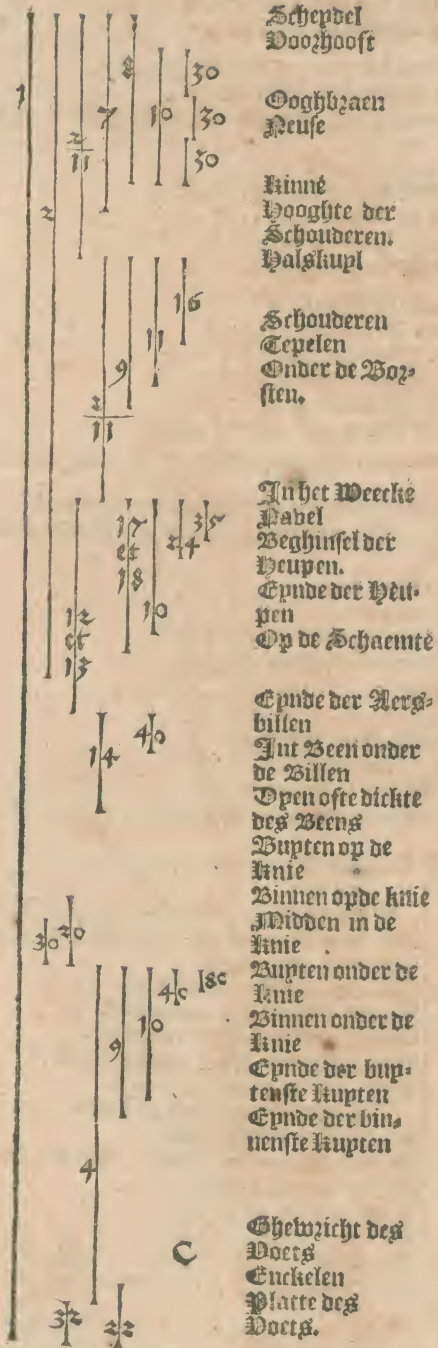 Scheydel
Voorhooft
Ooghbraen
Neuse
Kinne
Hooghte der
Schouderen.
Halskuyl
Schouderen
Tepelen
Onder de Bor-
sten.
In het Weecke
Navel
Beghinsel der
Heupen.
Eynde der Heu-
pen
Op de Schaemte
Eynde der Aers-
billen
Int Been onder
de Billen
Open ofte dickte
des Beens
Buyten op de
knie
Binnen opde knie
Midden in de
knie
Buyten onder de
knie
Binnen onder de
knie
Eynde der buy-
tenste kuyten
Eynde der bin-
nenste kuyten
Ghewricht des
Voets
Enckelen
Platte des
Voets.
1
2
2
11
7
8
10
30
30
30
2
11
9
11
16
12
et
13
17
et
18
10
24
35
14
40
30
20
4
9
10
40
C
32
22